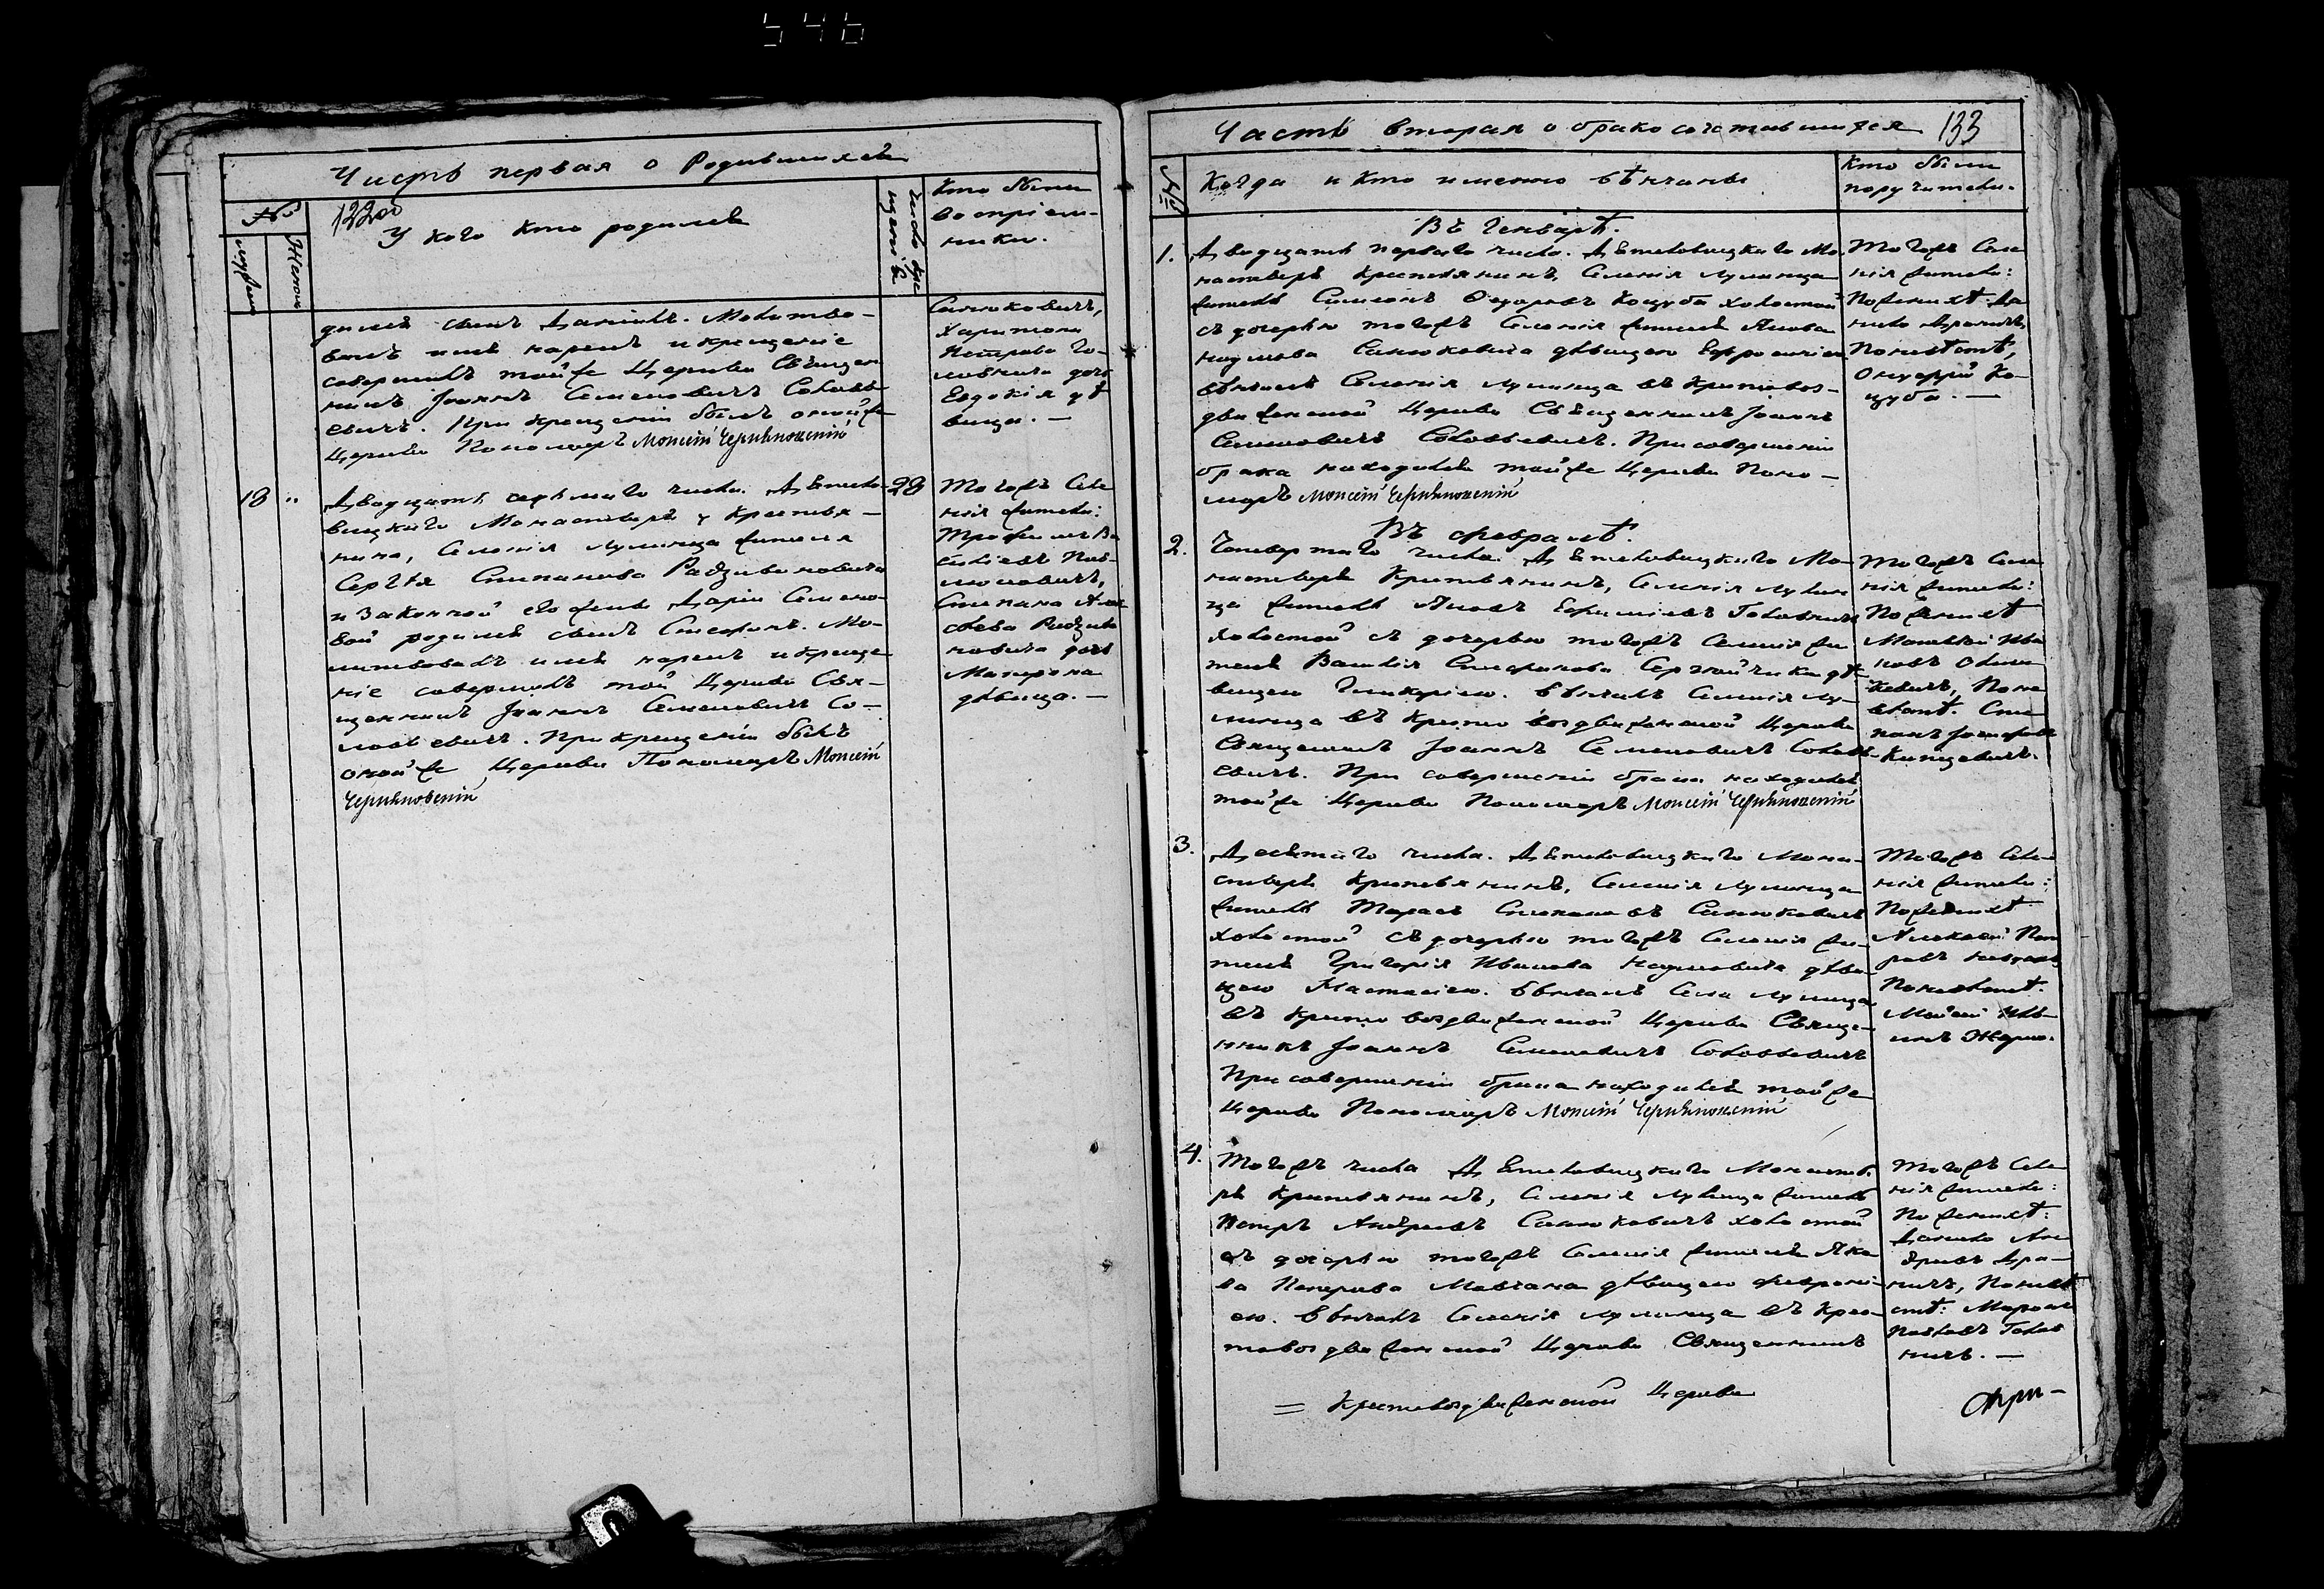 546
Часть первая о Родившихся
№
132об
У кого кто родился
Число крещенія
Кто были
воспріем-
ники.
Мужеска
Женска
дился сынъ Даніилъ. Молитво-
валъ имя нарекъ и крещеніе
совершилъ той же Церкви Священ
никъ Іоаннъ Семеновичъ Соловь-
евичъ. При крещеніи былъ оной же
Церкви Пономарь Моисей
Санюковичъ,
Харитона
Петрова Го-
ловнича дочь
Евдокія дѣ
вица. —
18 "
Двадцать седьмаго числа. Дятело-
вицкаго Монастыря у Крестья-
нина, Селенія Лунинца жителя
Сергѣя Степанова Радзивиновича
и Законной его жены Даріи Семено-
вой родился сынъ Стефанъ. Мо-
литвовалъ имя нарекъ и креще
ніе совершилъ той Церкви Свя-
щенникъ Іоаннъ Семеновичъ Со-
ловьевичъ. При крещеніи былъ
оной же Церкви Пономарь Моисей
28
Тогожъ Селе
нія жители:
Трофимъ Ва
сильевъ
Степана
Радзиви
новича дочь
Матрона
дѣвица. —
Часть вторая о бракосочетавшихся 133
№
Когда и кто именно вѣнчаны
Кто были
поручители.
Въ Генварѣ.
1. Двадцать перваго числа. Дятеловицкаго Мо-
настыря Крестьянинъ, Селенія Лунинца
житель Симеонъ Федоровъ Коцуба холостой
съ дочерью тогожъ Селенія жителя Якова
Наумова Санюковича дѣвицею Ефросиніею
Вѣнчалъ Селенія Лунинца въ Крестовоз-
движенской Церкви Священникъ Іоаннъ
Семеновичъ Соловьевичъ. При совершеніи
брака находился той же Церкви Поно-
марь Моисей
Тогожъ Селе
нія жители:
По женихѣ Да
нило
По невѣстѣ,
Онуфрій Ко-
цуба. —
Въ Февралѣ.
2. Четвертаго числа. Дятеловицкаго Мо-
настыря Крестьянинъ, Селенія Лунин
ца житель Яковъ Ефимовъ Головничъ
холостой съ дочерью тогожъ Селенія жи
теля Василія Стефанова дѣ-
вицею Гликеріею. Вѣнчалъ Селенія Лу-
нинца въ Крестовоздвиженской Церкви
Священникъ Іоаннъ Семеновичъ Соловь-
евичъ. При совершеніи брака находился
той же Церкви Пономарь Моисей
Тогожъ Селе
нія жители:
По женихѣ
Ива
новъ
По не
вѣстѣ. Сте
панъ
3. Десятаго числа. Дятеловицкаго Мона-
стыря Крестьянинъ, Селенія Лунинца
житель Тарасъ Степановъ Санюковичъ
холостой съ дочерью тогожъ Селенія жи-
теля Григорія Иванова Наумовича дѣви-
цею Настасіею. Вѣнчалъ Села Лунинца
въ Крестовоздвиженской Церкви Священ-
никъ Іоаннъ Семеновичъ Соловьевичъ
При совершеніи брака находился той же
Церкви Пономарь Моисей
Тогожъ Селе-
нія жители:
По женихѣ
Алексѣй
По невѣстѣ.
4. Тогожъ числа Дятеловицкаго Монасты-
ря Крестьянинъ, Селенія Лунинца житель
Петръ Андреевъ Санюковичъ холостой
съ дочерью тогожъ Селенія жителя Яко
ва Петрова Мовчана дѣвицею Феврони-
ею. Вѣнчалъ Селенія Лунинца въ Крес-
товоздвиженской Церкви Священникъ
Тогожъ Селе
нія жители:
По женихѣ:
Данило Ан
дреевъ
По невѣ
стѣ:
Павловъ Голов
ничъ. —
= Крестовоздвиженской Церкви
При-